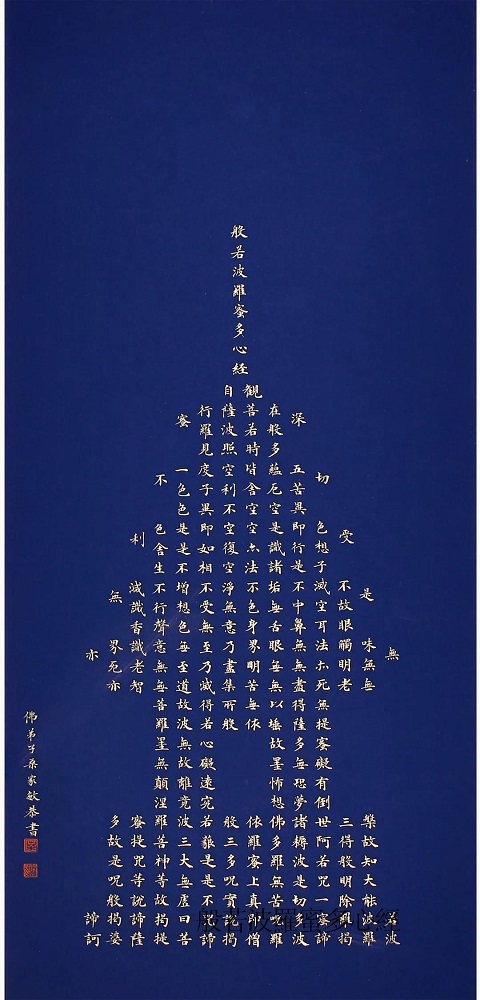 般若波羅蜜多心經
無
波
是味無無槃故知大能波羅
受不故眼觸明老三得般明除興揭
切色想子滅空耳法亦死無提蜜礙有倒世阿若咒一蜜諦
深五苦異即行是不中鼻無無盡得薩多無恐夢諸耨波是切多波
在般多蘊厄空是識諸垢無舌眼無無以埵故罣怖想佛多羅無苦咒羅
觀菩若時皆舍空空亦法不色身界明苦無依依羅蜜上真即僧
自薩波照空利不空復空淨無意乃盡集所般般三多咒實說揭
行羅見度子異即如相不受無至乃滅得若心礙遠究若藐是是不諦
蜜一色色是是不增想色無至道故波無故離竟波三大無虛曰菩
不色舍生不行聲意無無菩羅罣無顛涅羅菩神等故揭提
利滅識香識老智蜜提咒等說諦薩
無界死亦多故是呪般揭婆
亦諦訶
佛弟子桑家敏恭書
般若波羅蜜多心經